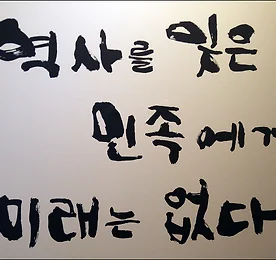 역사를 잊은
민족에게
미래는 없다